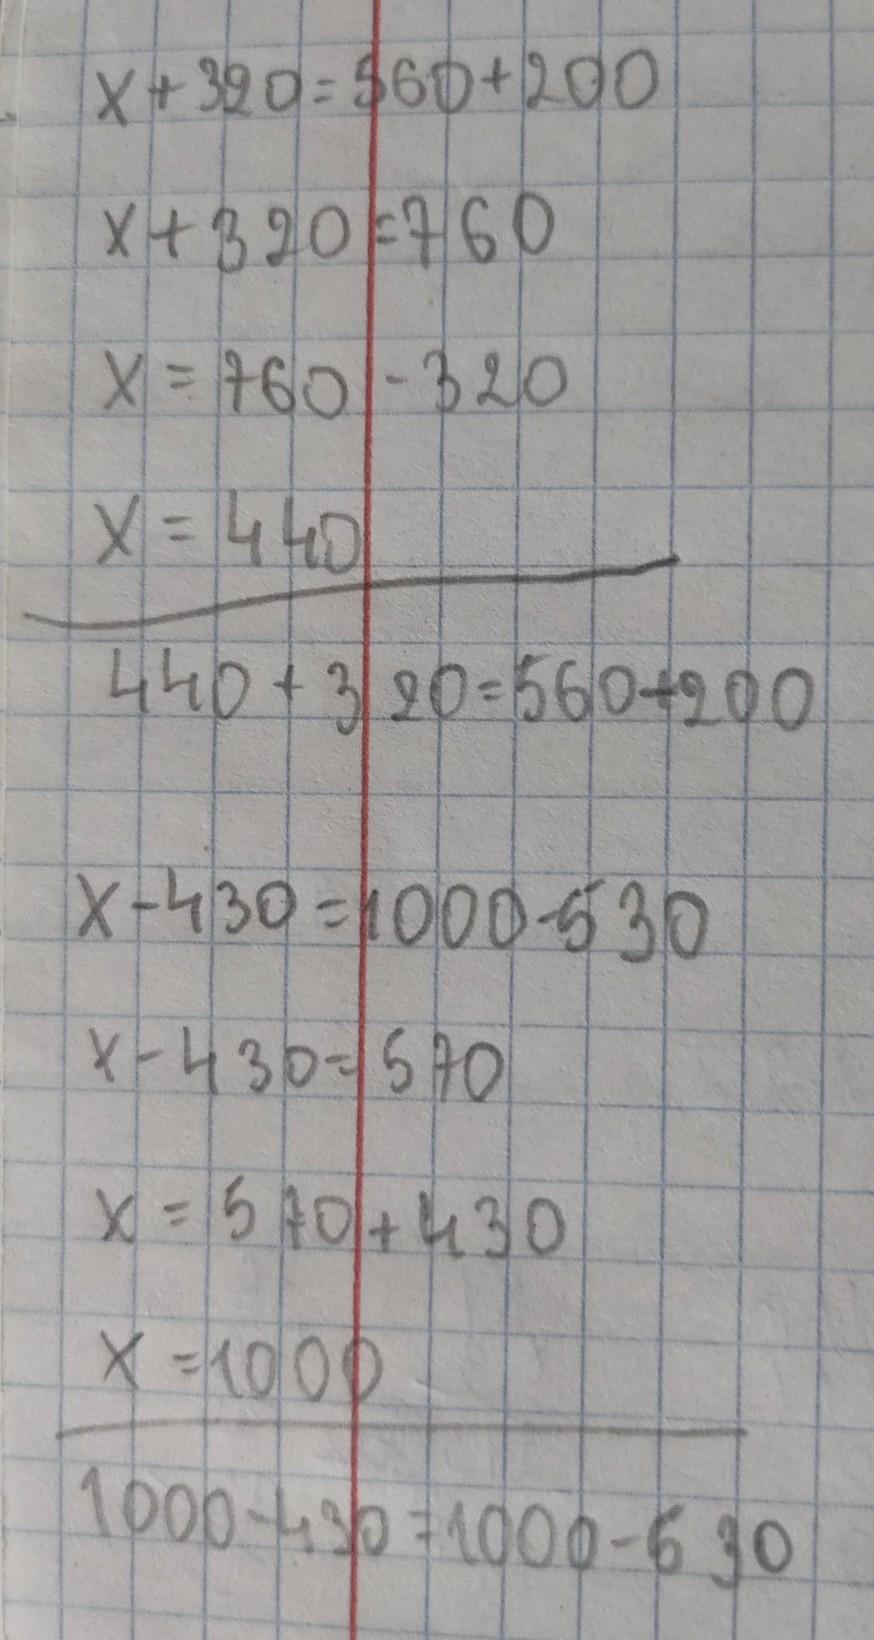 x+320=560+200
x+320=760
x=760-320
x=440
440+320=560+200
x-430=1000-530
x-430=570
x=570+430
x=1000
1000-430=1000-530